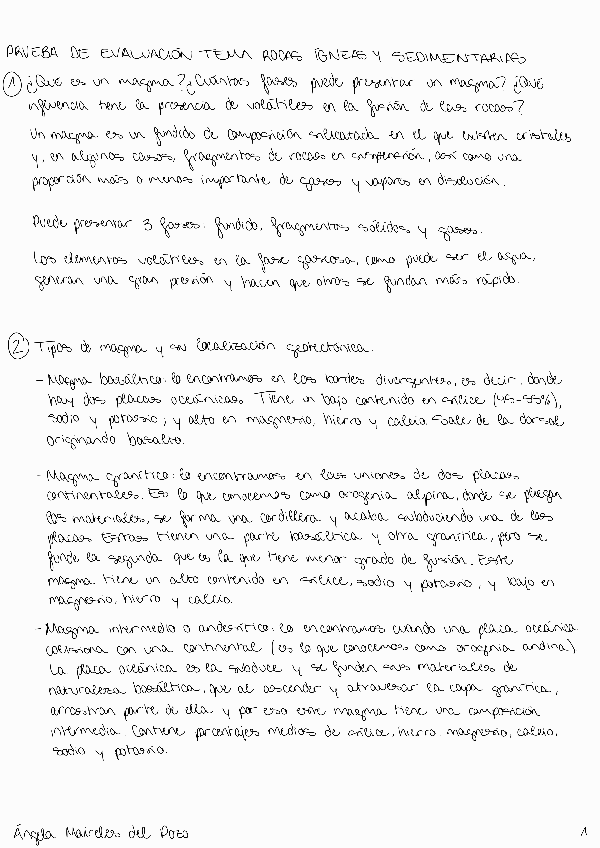 PRUEBA DE EVALUACIÓN TEMA ROCAS ÍGNEAS Y SEDIMENTARIAS
1 ¿Qué es un magma? ¿Cuántas fases puede presentar un magma? ¿Qué
influencia tiene la presencia de volátiles en la fusión de las rocas?
Un magma es un fundido de composición silicatada en el que existen cristales
y, en algunos casos, fragmentos de rocas en suspensión, así como una
proporción más o menos importante de gases y vapores en disolución.
Puede presentar 3 fases: fundido, fragmentos sólidos y gases.
Los elementos volátiles en la fase gaseosa, como puede ser el agua,
generan una gran presión y hacen que otros se fundan más rápido.
2 Tipos de magma y su localización geotectónica.
- Magma basáltico: lo encontramos en los bordes divergentes, es decir, donde
hay dos placas oceánicas. Tiene un bajo contenido en sílice (45-55%),
sodio y potasio; y alto en magnesio, hierro y calcio. Sale de la dorsal
originando basalto.
- Magma granítico: lo encontramos en las uniones de dos placas
continentales. Es lo que conocemos como orogenia alpina, donde se pliegan
los materiales, se forma una cordillera y acaba subduciendo una de las
placas. Estas tienen una parte basáltica y otra granítica, pero se
funde la segunda que es la que tiene menor grado de fusión. Este
magma tiene un alto contenido en sílice, sodio y potasio, y bajo en
magnesio, hierro y calcio.
- Magma intermedio o andesítico: lo encontramos cuando una placa oceánica
colisiona con una continental (es lo que conocemos como orogenia andina)
La placa oceánica es la subduce y se funden sus materiales de
naturaleza basáltica, que al ascender y atravesar la capa granítica,
arrastran parte de ella y por eso este magma tiene una composición
intermedia. Contiene porcentajes medios de sílice, hierro, magnesio, calcio,
sodio y potasio.
Ángela Maireles del Pozo
1